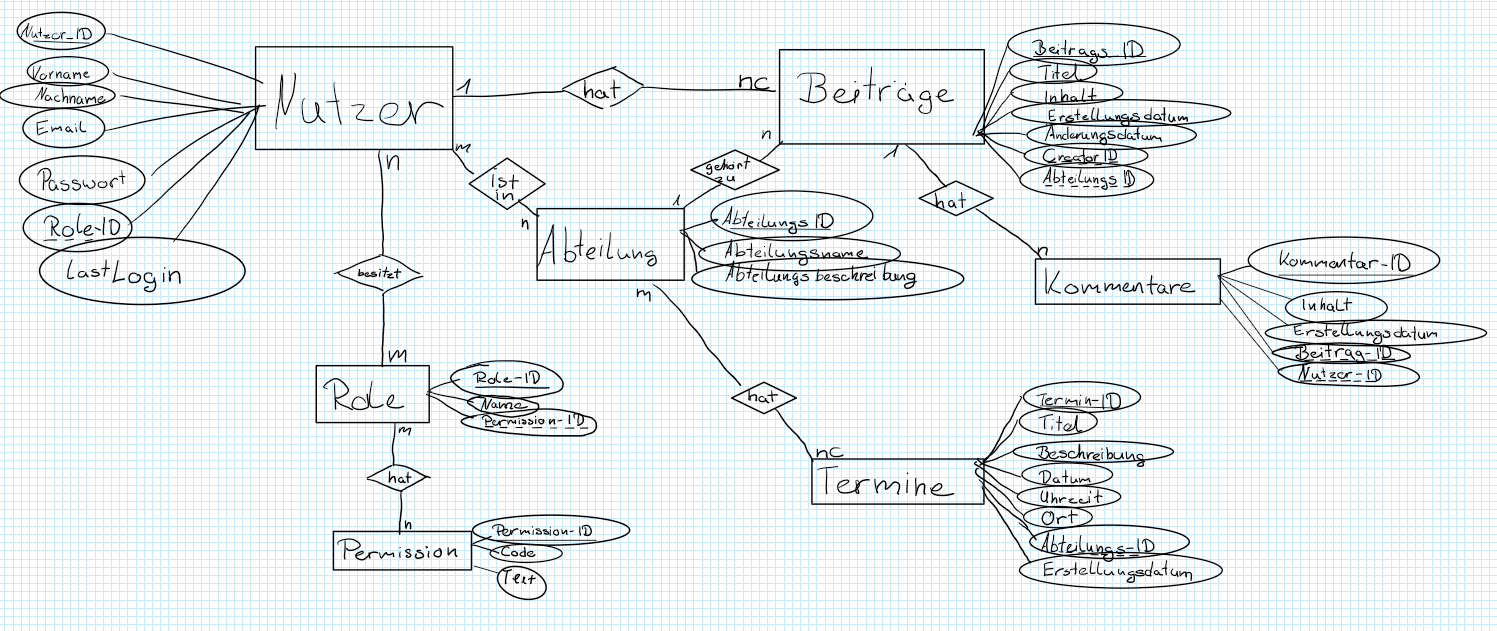 Nutzer_ID
Vorname
Nachname
Email
Passwort
Role-ID
LastLogin
Nutzer
1
hat
nc
Beiträge
Beitrags ID
Titel
Inhalt
Erstellungsdatum
Änderungsdatum
Creator ID
Abteilungs ID
n
m
ist
in
n
gehört
zu
n
1
1
hat
n
Abteilung
Abteilungs ID
Abteilungsname
Abteilungsbeschreibung
Kommentare
Kommentar-ID
Inhalt
Erstellungsdatum
Beitrag-ID
Nutzer-ID
besitzt
m
Role
Role-ID
Name
Permission-ID
m
hat
n
Permission
Permission-ID
Code
Text
m
hat
nc
Termine
Termin-ID
Titel
Beschreibung
Datum
Uhrzeit
Ort
Abteilungs-ID
Erstellungsdatum